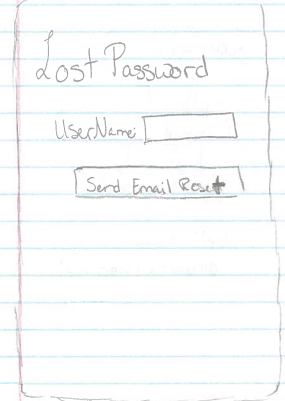 Lost Password
UserName:
Send Email Reset